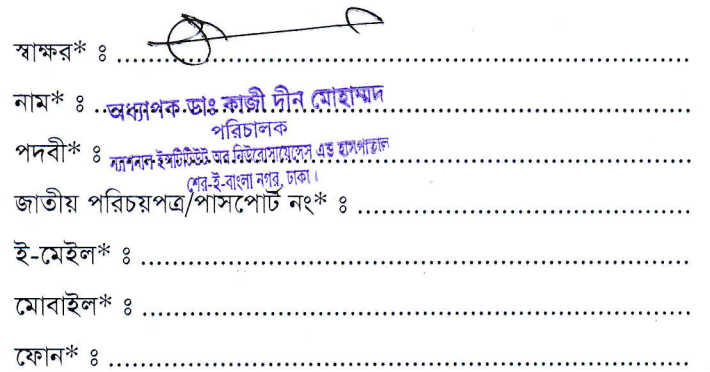 স্বাক্ষর* ঃ ........................................................................
নাম* ঃ ..অধ্যাপক ডাঃ কাজী দীন মোহাম্মদ........................................
পরিচালক
পদবী* ঃ ন্যাশনাল ইন্সটিটিউট অব নিউরোসায়েন্সেস এন্ড হাসপাতাল........................................
শের-ই-বাংলা নগর, ঢাকা।
জাতীয় পরিচয়পত্র/পাসপোর্ট নং* ঃ ..........................................
ই-মেইল* ঃ .....................................................................
মোবাইল* ঃ .....................................................................
ফোন* ঃ .........................................................................